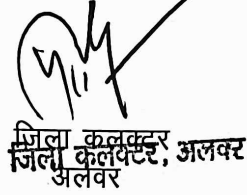 जिला कलक्टर
जिला कलेक्टर, अलवर
अलवर